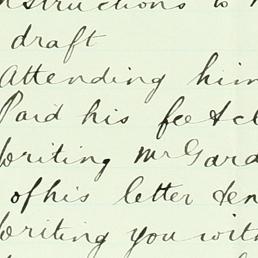 structions to
draft
Attending him
Paid his fee & cl
Writing Mr Gard
of his letter den
Writing you with